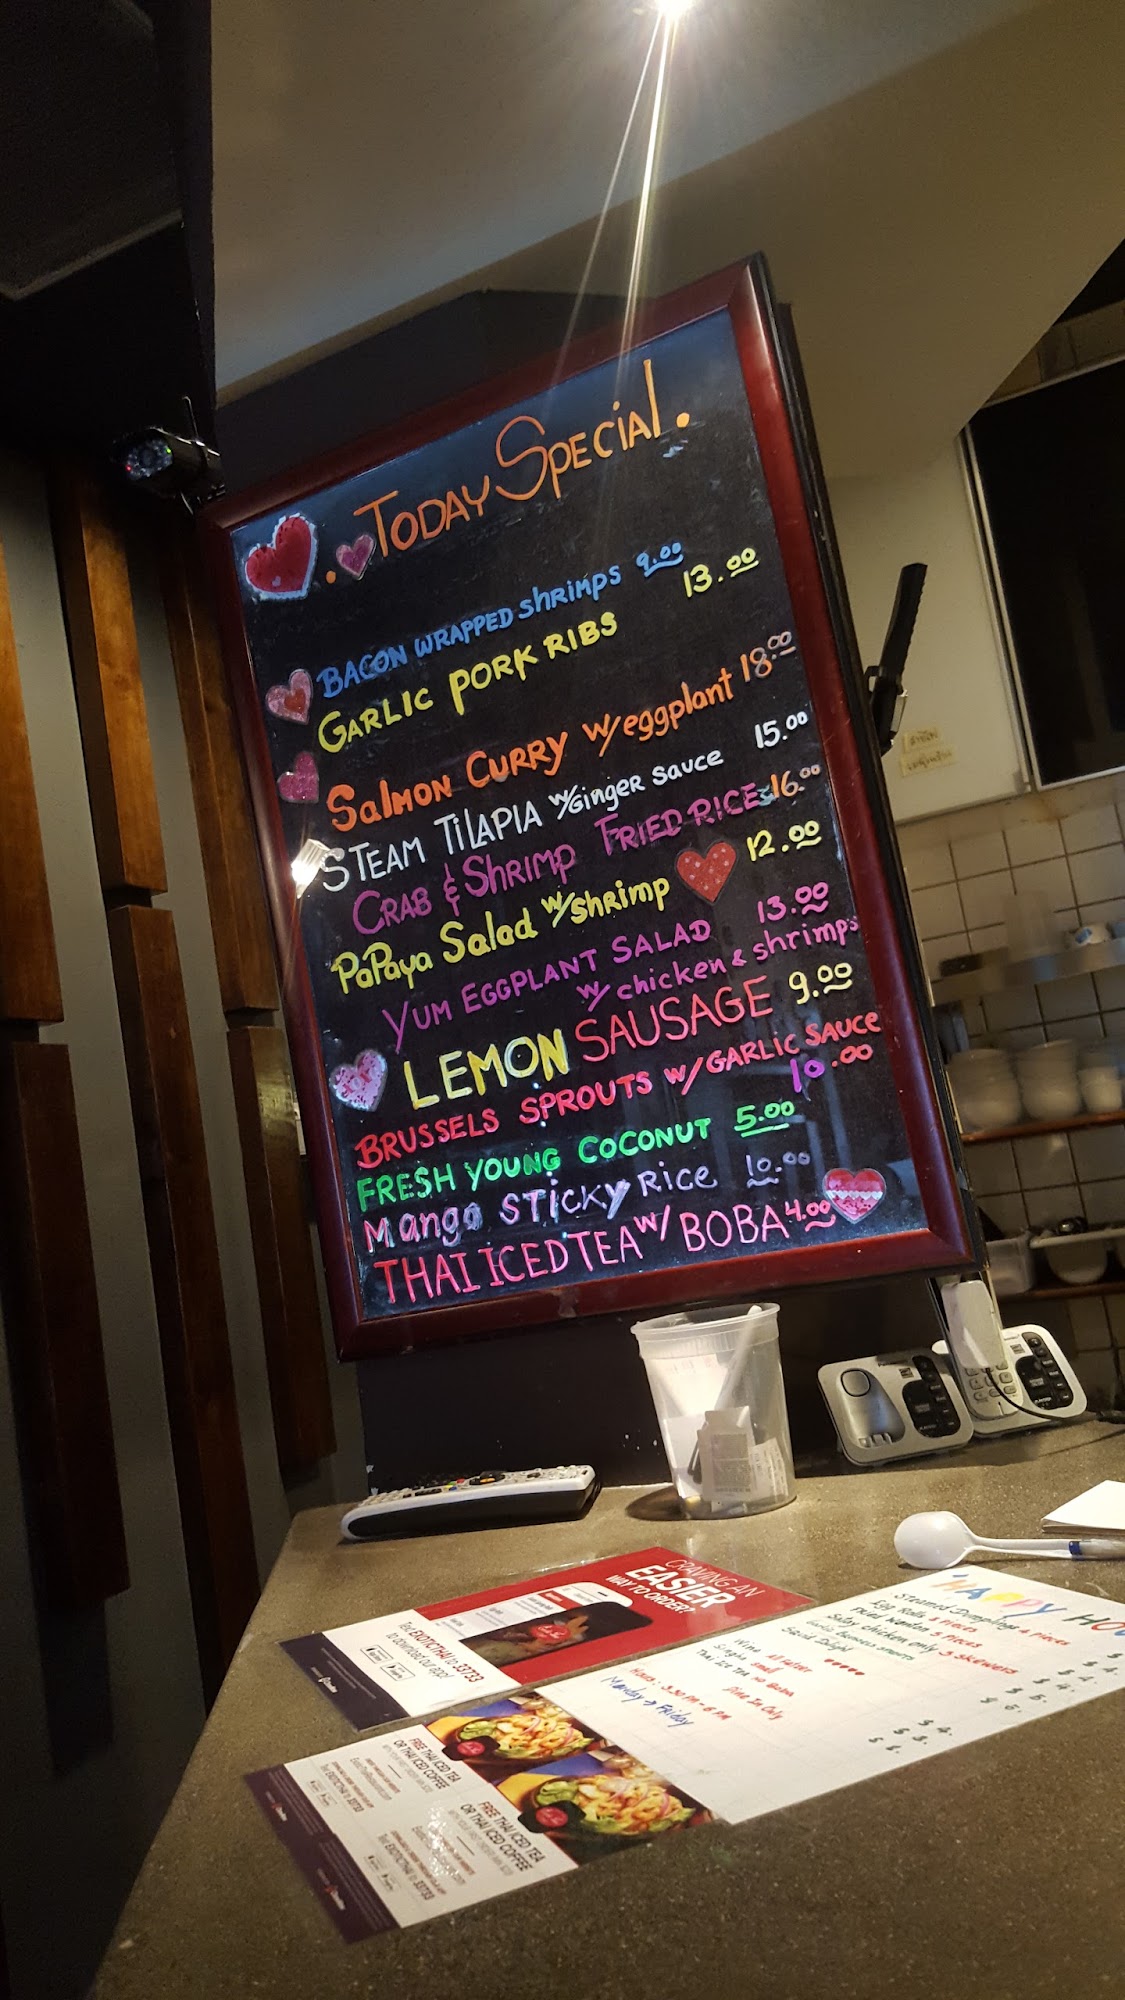 . Today Special.
BACON WRAPPED shrimps 9.00
GARLIC PORK RIBS 13.00
Salmon Curry w/ eggplant 18.00
STEAM TILAPIA w/Ginger sauce 15.00
CRAB & Shrimp FRIED RICE 16.00
PaPaya Salad w/shrimp 12.00
YUM EGGPLANT SALAD 13.00
w/ chicken & shrimps
LEMON SAUSAGE 9.00
BRUSSELS SPROUTS w/ GARLIC SAUCE
10.00
FRESH YOUNG COCONUT 5.00
Mango STICKY Rice 10.00
THAI ICED TEA w/ BOBA 4.00
CRAVING AN
EASIER
WAY TO ORDER?
Text EXOTICTHAI to 33733
to download our app!
HAPPY HOU
Steamed Dumplings 4 PIECES
Egg Rolls 3 PIECES
Fried Wonton 5 PIECES
Satay chicken only 3 SKEWERS
Squid Delight
Thai ICE TEA NO BOBA
Dine In Only
Hours: 3:30 PM - 6 PM
Monday → Friday
FREE THAI ICED TEA
OR THAI ICED COFFEE
Text EXOTICTHAI to 33733
FREE THAI ICED TEA
OR THAI ICED COFFEE
Text EXOTICTHAI to 33733